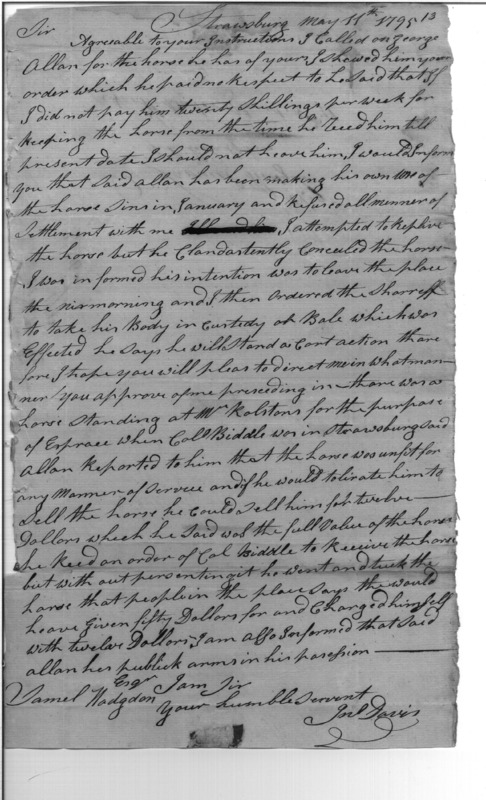 Strawsburg May 11th 1795 13
Sir
Agreable to your Instructions I Called on George
Allan for the horse he has of yours, I showed him your
order which he paid no Respect to & Said that If
I did not pay him twenty Shillings per week for
keeping the horse from the time he Receed him till
present date I should not heave him, I would Inform
You that Said allan has been making his own use of
the horse Sins in January and refused all menner of
Settlement with me I attempted to Replive
the horse but he Clandastently Concealed the horse
I was in formed his intention was to leave the place
the nixt morning and I then ordered the Sharreff
to take his Body in Custedy ot Bale which was
Effected he says he will Stand a Cort action thare
fore I hope you will pleas to direct me in What man
ner You approve of me preseding in — thare was a
horse Standing at Mr Rolstons for the purpose
of Exprace when Col Biddle was in Strawsburg said
Allan Reported to him that the horse was unfit for
any Manner of Service and if he would tolirate him to
Sell the horse he Could Sell him for twelve —
Dollars which he Said was the full Value of the horse
he Receed an order of Col Biddle to Receive the horse
but with out persenting it he went and tuck the
horse that people in the place Says the would
heave Given fifty Dollars for and Charged himself
with twelve Dollars, I am also Informed that Said
allan hes publick arms in his posession —
Esqr I am Sir
Samel Hodgdon Your humble Servent
Jno Davis